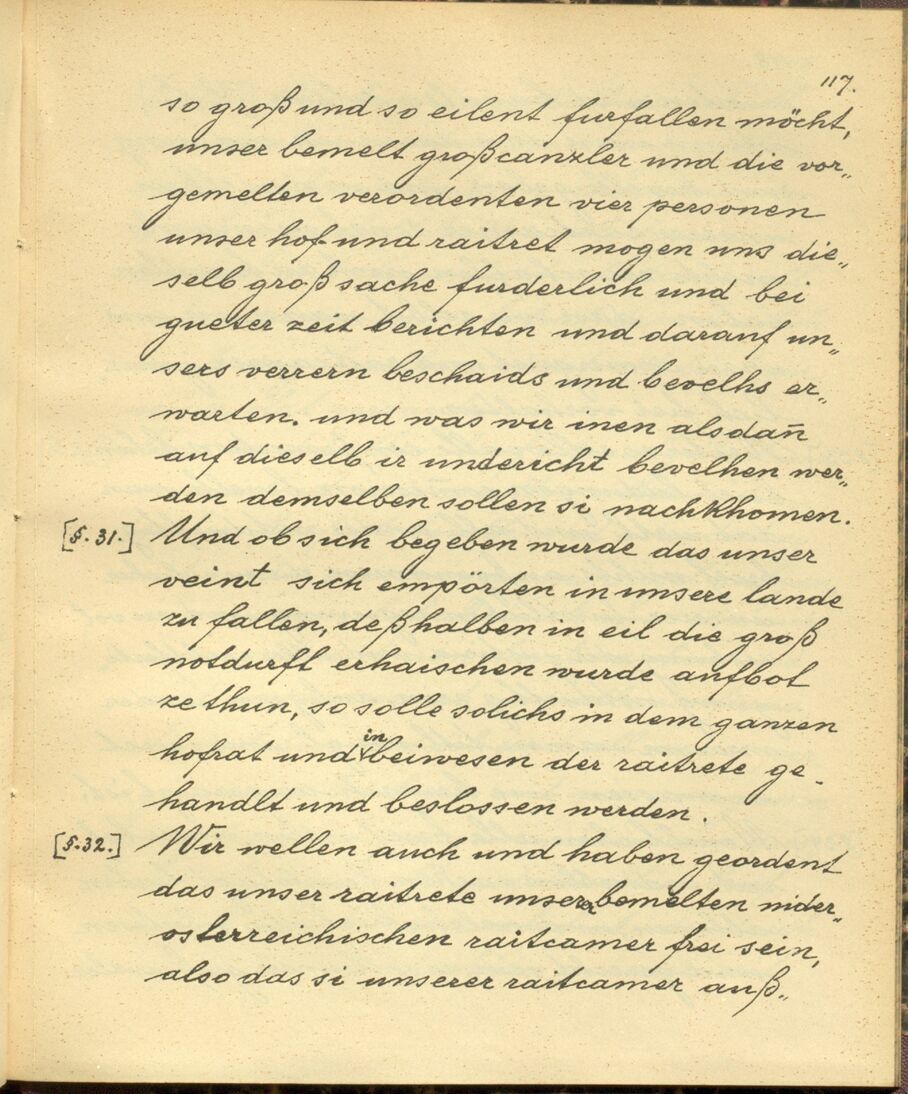 117.
so groß und so eilent furfallen möcht,
unser bemelt großcanzler und die vor„
gemelten verordenten vier personen
unser hof- und raitret mogen uns die„
selb groß sache furderlich und bei
gueter zeit berichten und darauf un„
sers verrern beschaids und bevelhs er„
warten. und was wir inen alsdan̄
auf dieselb ir undericht bevelhen wer„
den demselben sollen si nachkhomen.
[§. 31.] Und ob sich begeben wurde das unser
veint sich empörten in unsere lande
zu fallen, deßhalben in eil die groß
notdurft erhaischen wurde aufbot
ze thun, so solle solichs in dem ganzen
hofrat und in beiwesen der raitrete ge-
handlt und beslossen werden.
[§. 32.] Wir wellen auch und haben geordent
das unser raitrete unserer bemelten nider„
osterreichischen raitcamer frei sein,
also das si unserer raitcamer auß„